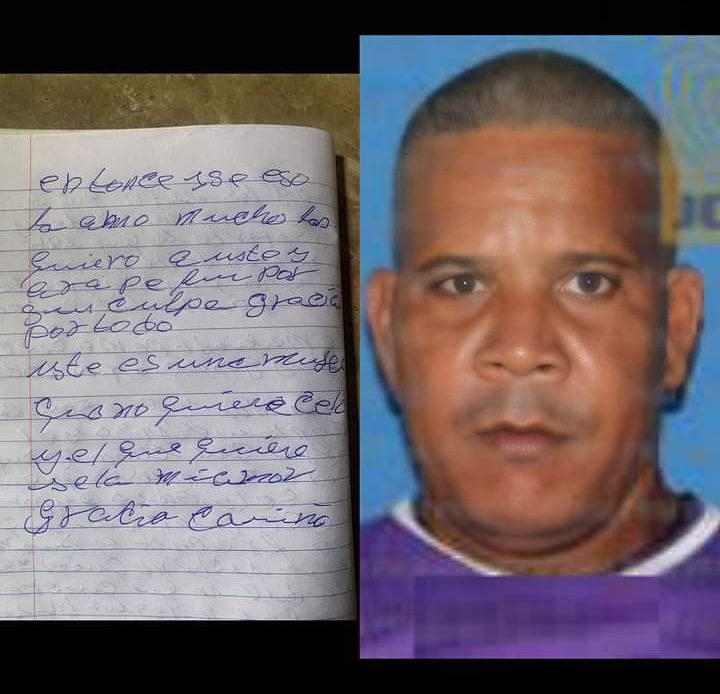 entonce yse eso
la amo mucho las
quiero a uste y
ara pe run por
guu culpa gracia
por todo
uste es una muje
qua no quiere cel
y el que quiere
sela mi amor
gracia cariño
JC